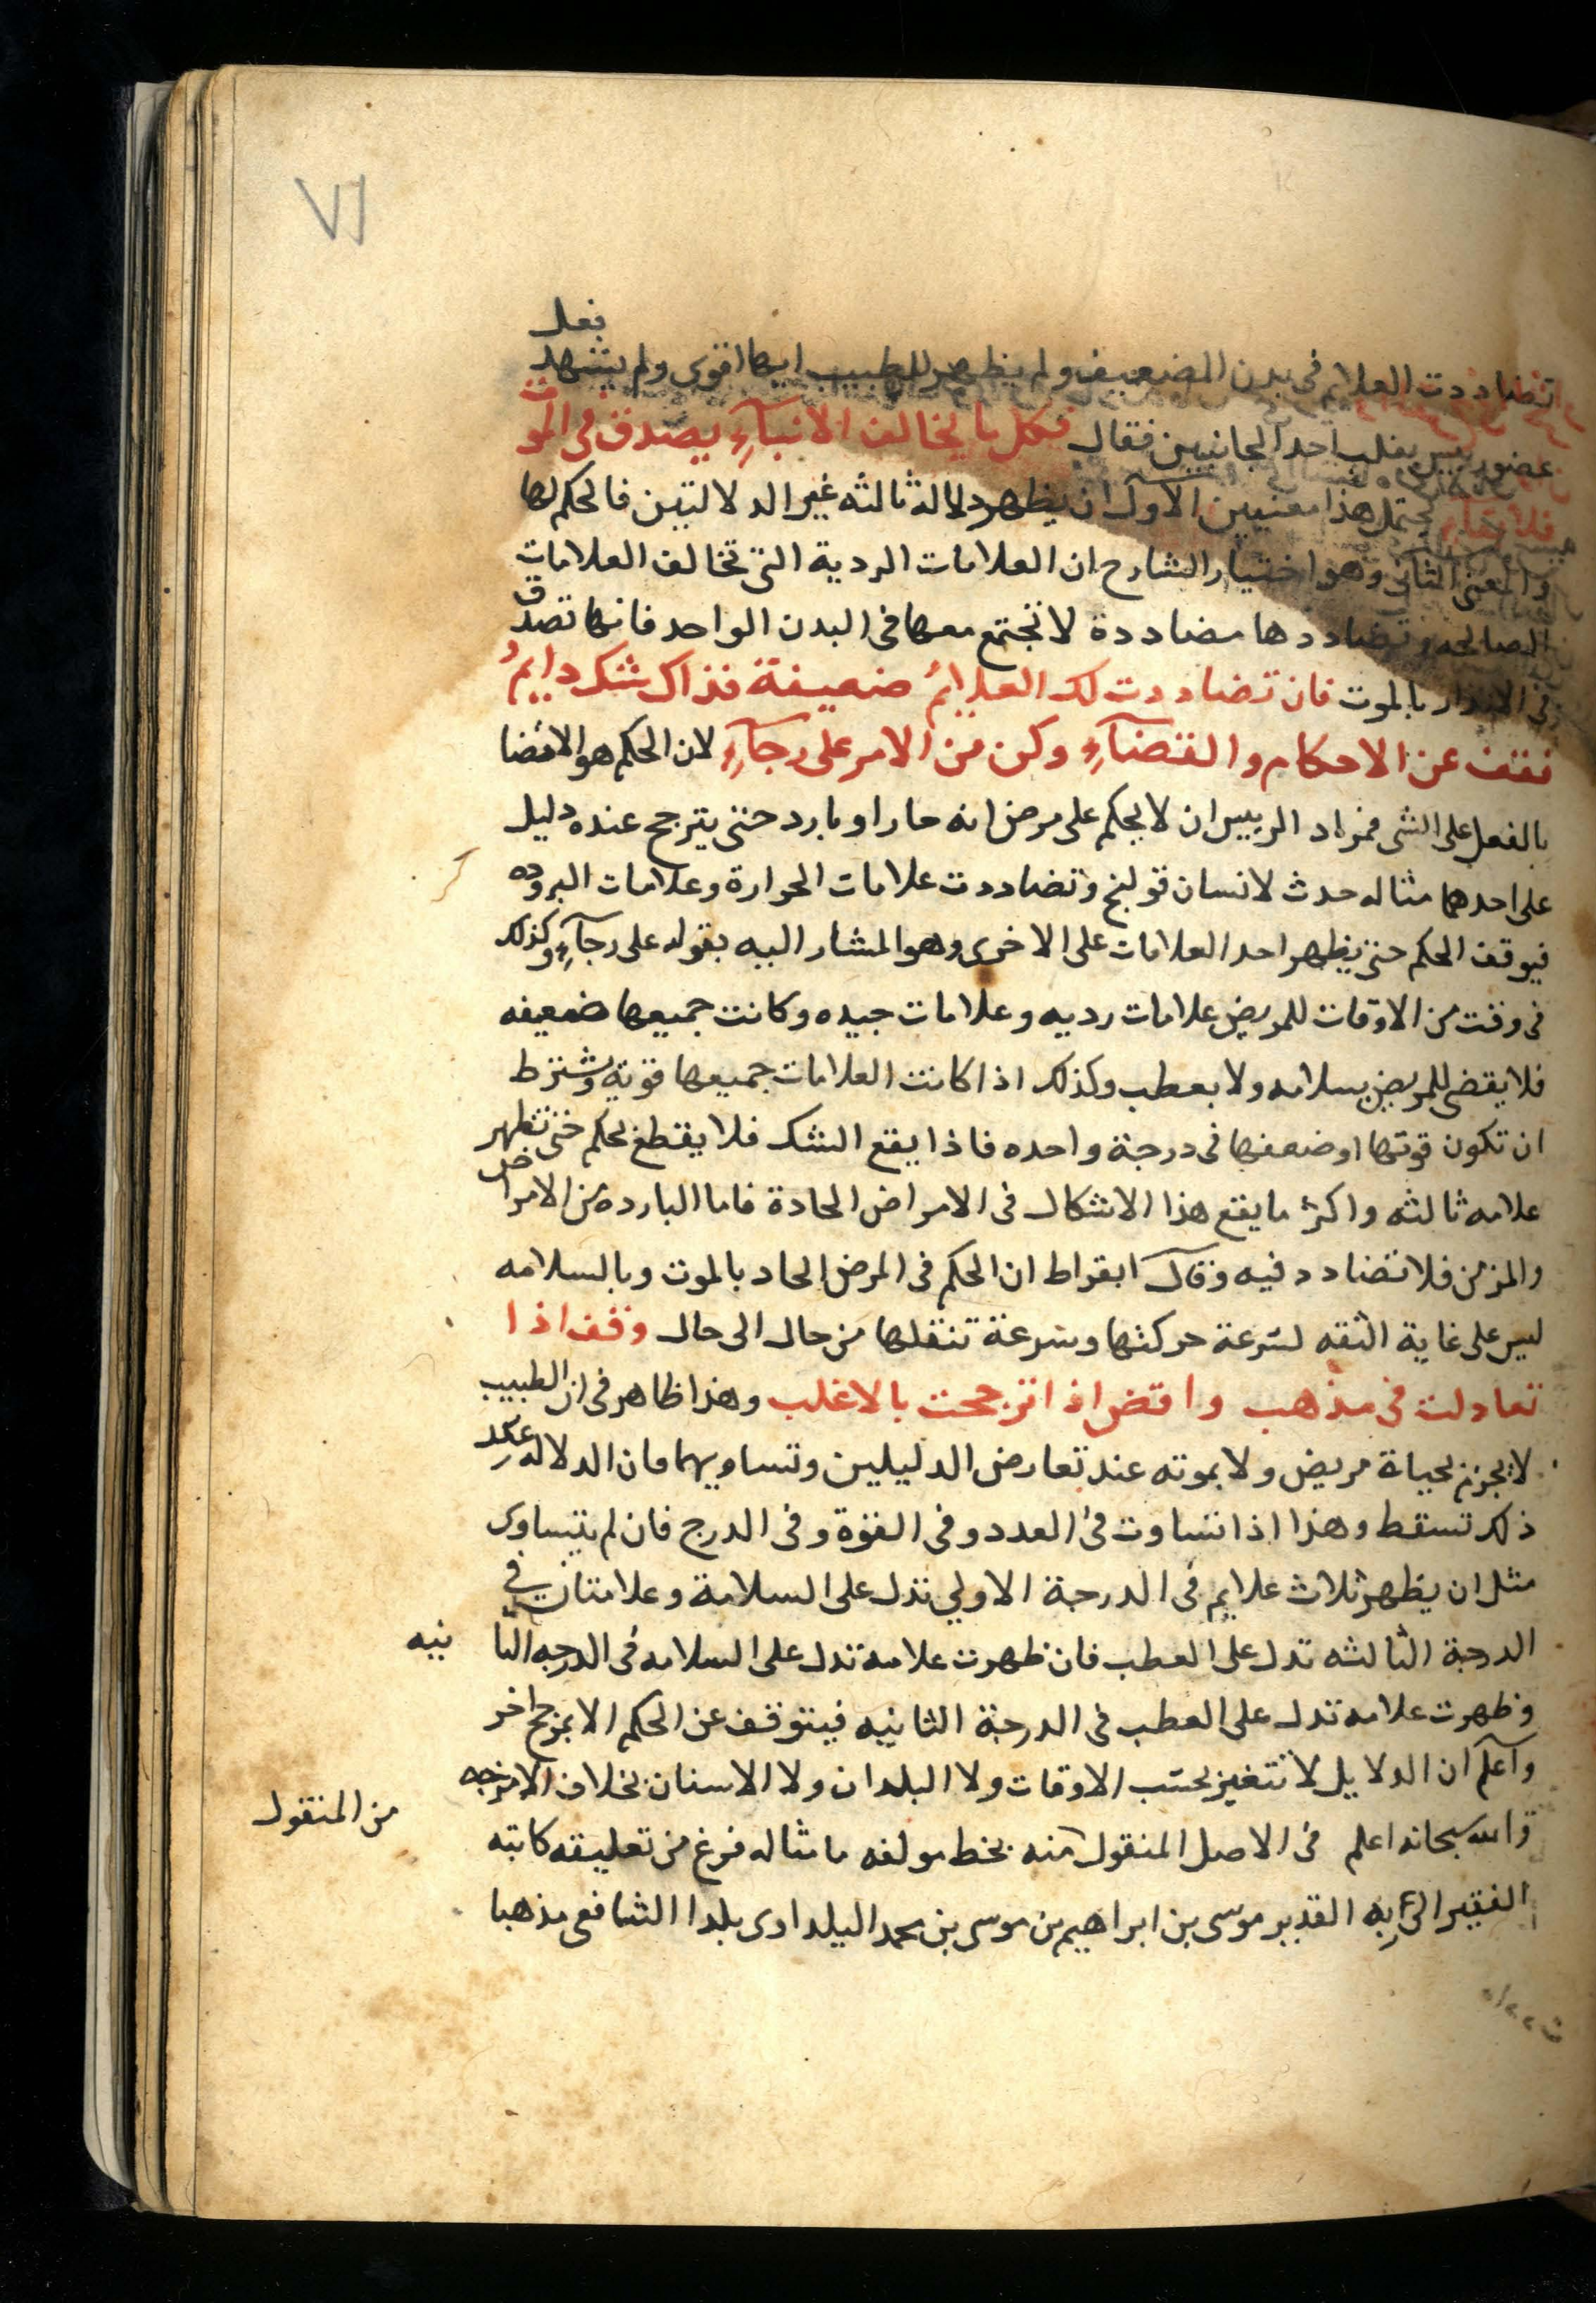 ٧١
تضاددت العلايم فى بدن الضعيف ولم يظهر للطبيب ايها اقوى ولم يشهد بفعل
عضو رييس بغلب احد الجانبين فقال فكل ما يخالف الانباء يصدق فى الموت
يحتمل هذا معنيين الاول ان يظهر دلالة ثالثه غير الدلالتين فالحكم لها
والمعنى الثانى وهو اختيار الشارح ان العلامات الردية التى تخالف العلامات
الصالحه وتضاددها مضاددة لا تجتمع معها فى البدن الواحد فانها تصدق
فى الانذار بالموت فان تضاددت لك العلايم ضعيفة فذاك شك دايم
فقف عن الاحكام والقضاء وكن من الامر على رجاء لان الحكم هو الامضا
بالفعل على الشى فمراد الرييس ان لا يحكم على مرض انه حار او بارد حتى يترجح عنده دليل
على احدهما مثاله حدث لانسان قولنج وتضاددت علامات الحرارة وعلامات البروده
فيوقف الحكم حتى يظهر احد العلامات على الاخرى وهو المشار اليه بقوله على رجاء وكذلك
فى وقت من الاوقات للمريض علامات رديه وعلامات جيده وكانت جميعها ضعيفه
فلا يقضى للمريض بسلامه ولا بعطب وكذلك اذا كانت العلامات جميعها قوية ويشترط
ان تكون قوتها او ضعفها فى درجة واحده فاذا يقع الشك فلا يقطع بحكم حتى تظهر
علامه ثالثه واكثر ما يقع هذا الاشكال فى الامراض الحادة فاما البارده من الامراض
والمزمن فلا تضادد فيه وقال ابقراط ان الحكم فى المرض الحاد بالموت وبالسلامه
ليس على غاية الثقه لسرعة حركتها وسرعة تنقلها من حال الى حال وقف اذا
تعادلت فى مذهب واقض اذا ترجحت بالاغلب وهذا ظاهر فى ان الطبيب
لا يجزم بحياة مريض ولا بموته عند تعارض الدليلين وتساويهما فان الدلاله عند
ذلك تسقط وهذا اذا تساوت فى العدد وفى القوة وفى الدرج فان لم يتساوى
مثل ان يظهر ثلاث علايم فى الدرجة الاولي تدل على السلامة وعلامتان في
الدرجة الثالثه تدل على العطب فان ظهرت علامه تدل على السلامه فى الدرجه الثا نيه
وظهرت علامه تدل على العطب فى الدرجة الثانيه فيتوقف عن الحكم الا بمرجح اخر
واعلم ان الدلايل لا تتغير بحسب الاوقات ولا البلدان ولا الاسنان بخلاف الامزجه
والله سبحانه اعلم فى الاصل المنقول منه بخط مولفه ما مثاله فرغ من تعليقه كاتبه
من المنقول
الفقير الى ربه القدير موسى بن ابراهيم بن موسى بن محمد اليلداوى بلدا الشافعى مذهبا